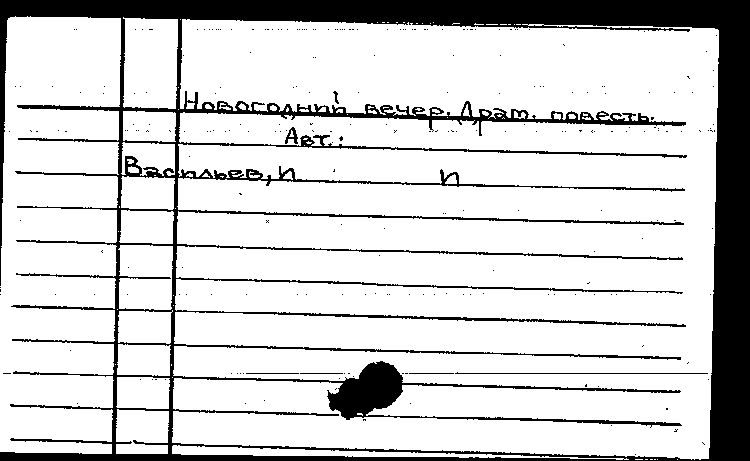 Новогодний вечер. Драм. повесть.
Авт.:
Васильев, П П